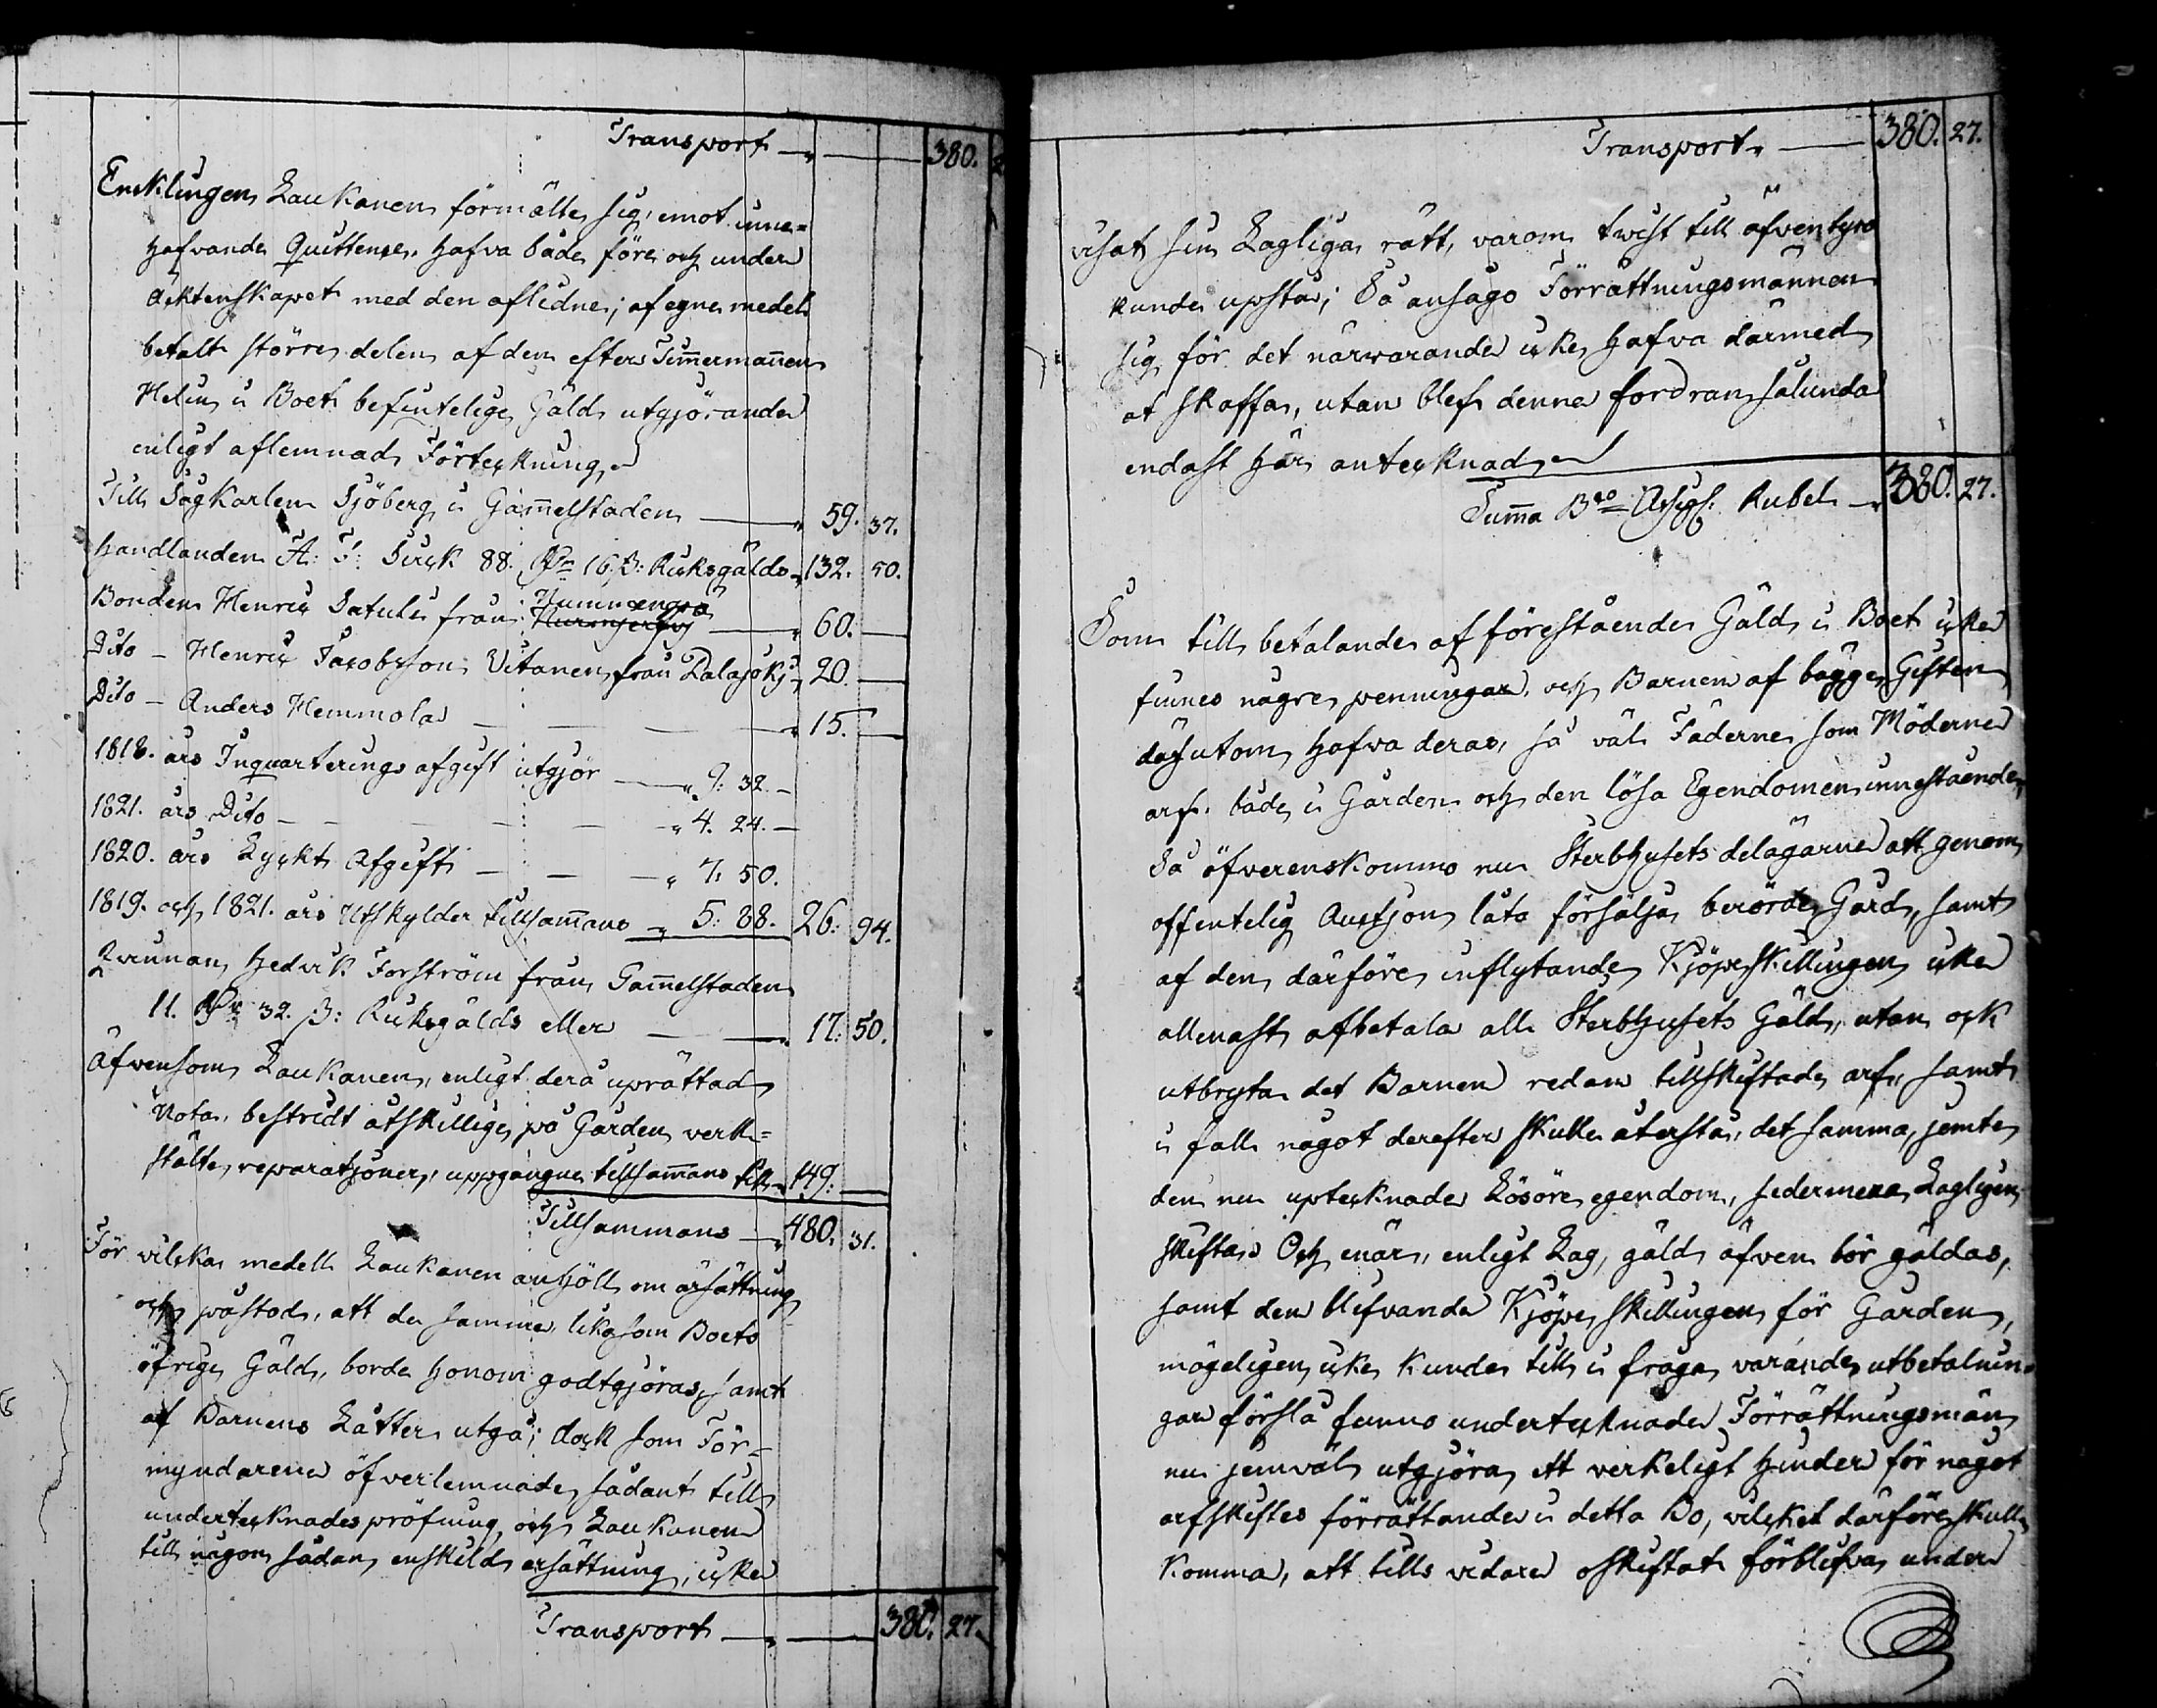 Transport 380.
Encklingen Laukanen förmälte sig, emot inne=
hafvande Quittencer, hafva både före och under
äcktenskapet med den aflidne; af egne medel
betalt större delen af den efter Tim̄ermannen
Helin i Boet befintelige Gäld utgjörande
enligt aflemnad Förteckning.
Till Sågkarlen Sjöberg i Gam̄elstaden 59. 37.
Handlanden A: F: Sirck 88. Rdr 16 ß: Riksgälds 132. 50.
Nummengrå
Bonden Henric Satuli från 60.
Dito – Henric Jacobsson Vitanen från Palajoki 20.
Dito – Anders Hemmola 15.
1818. års Inquarterings afgift utgör 9: 32.
1821. års Dito 4. 24.
1820. års Lyckt Afgift 7: 50.
1819. och 1821. års Utskylder tillsam̄ans 5: 88. 26: 94.
Qvinnan Hedvik Forström från Gam̄elstaden
11. Rdr 32. ß: Riksgälds eller 17: 50.
Äfvensom Laukanen, enligt derå uprättad
Nota, bestridt åtskillige på Gården verk=
stälte reparatjoner, uppgångne tillsam̄ans till 149:
Tillsammans 480. 31.
För vilcka medell Laukanen anhöll om ersättning
och påstod, att de samme, likasom Boets
öfrige Gäld, borde honom godtgjöras, samt
af Barnens Låtter utgå; dock som För=
myndarene öfverlemnade sådant till
undertecknades pröfning, och Laukanen
till någon sådan enskild ersättning, icke
Transport 380. 27.
Transport 380. 27.
visat sin Lagliga rätt, varom tvist till äfventyrs
kunde upstå; Så ansågo Förrättningsmännen
sig för det närvarande icke hafva därmed
at skaffa, utan blef denna fordran sålunda
endast här antecknad.
Sum̄a Bco Assign: Rubel 380. 27.
Som till betalande af förestående Gäld i Boet icke
finnes någre penningar, och Barnen af bägge Giften
desutom hafva deras, så väl Fäderne som Möderne
arf, både i Gården och den lösa Egendomen innestående,
Så öfverenskommo nu Sterbhusets delägarne att genom
offentelig Auctjon låta försälja berörde Gård, samt
af den därföre inflytande Kjöpeskillingen icke
allenast afbetala all Sterbhusets Gäld, utan ock
utbryta det Barnen redan tillskiftade arf, samt
i fall något derefter skulle återstå, det samma, jemte
den nu uptecknade Lösöre egendom, sedermera Lagligen
skiftas Och enär, enligt Lag, gäld äfven bör gäldas,
samt den blifvande Kjöpe skillingen för Gården,
mögeligen icke kunde till i fråga varande utbetalnin=
gar förslå funno undertecknade Förrättningsmän
nu jemväl utgjöra ett verkeligt hinder för något
arfskiftes förrättande i detta Bo, vilcket därföre skulle
komma, att tills vidare oskiftat förblifva under